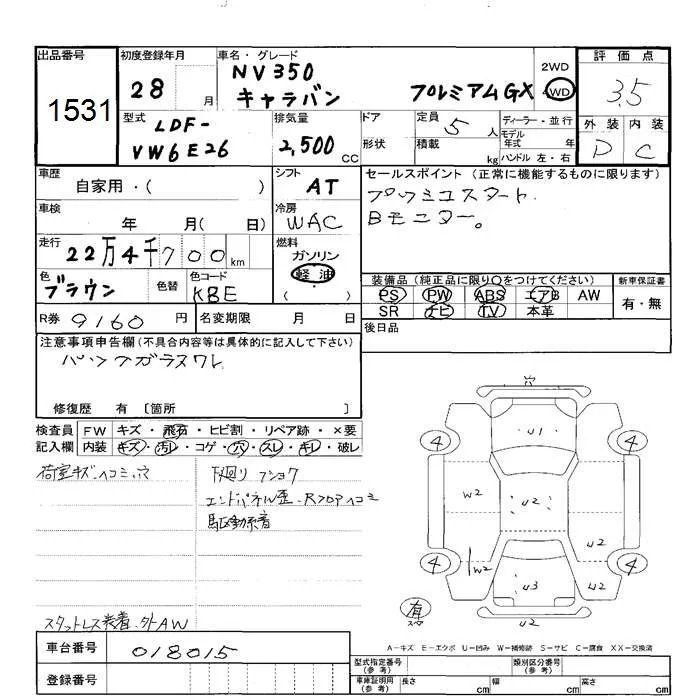 出品番号
1531
初度登録年月
28 月
車名・グレード
NV350
キャラバン プレミアムGX
2WD
4WD
評価点
3.5
外装 内装
D C
型式
LDF-
VW6E26
排気量
2,500 cc
ドア
形状
定員 5 人
積載 kg
ディーラー・並行
モデル
年式 年
ハンドル 左・右
車歴
自家用・( )
シフト
AT
車検
年 月( 日)
冷房
WAC
走行
22万4千700 km
燃料
ガソリン
軽油
( )
色
ブラウン
色替
色コード
KBE
R券 9160 円
名変期限 月 日
セールスポイント(正常に機能するものに限ります)
プッシュスタート.
Bモニター。
装備品(純正品に限り○をつけてください)
PS PW ABS エアB AW
SR ナビ TV 本革
新車保証書
有・無
後日品
注意事項申告欄(不具合内容等は具体的に記入して下さい)
修復歴 有 〔箇所 〕
検査員
記入欄
FW キズ・飛石・ヒビ割・リペア跡・×要
内装 キズ・汚レ・コゲ・穴・スレ・キレ・破レ
荷室キズ・ヘコミ・穴
下廻リ フショク
エンドパネル歪・Rフロアヘコミ
スタットレス装着・外AW
穴
U1
4
4
W2
U2
U2
4
4
W2
U3
U2
有
U2
A-キズ E-エクボ U-凹み W-補修跡 S-サビ C-腐食 XX-交換済
車台番号
018015
登録番号
型式指定番号
(参考)
類別区分番号
(参考)
車庫証明用
(参考)
長さ cm
幅 cm
高さ cm